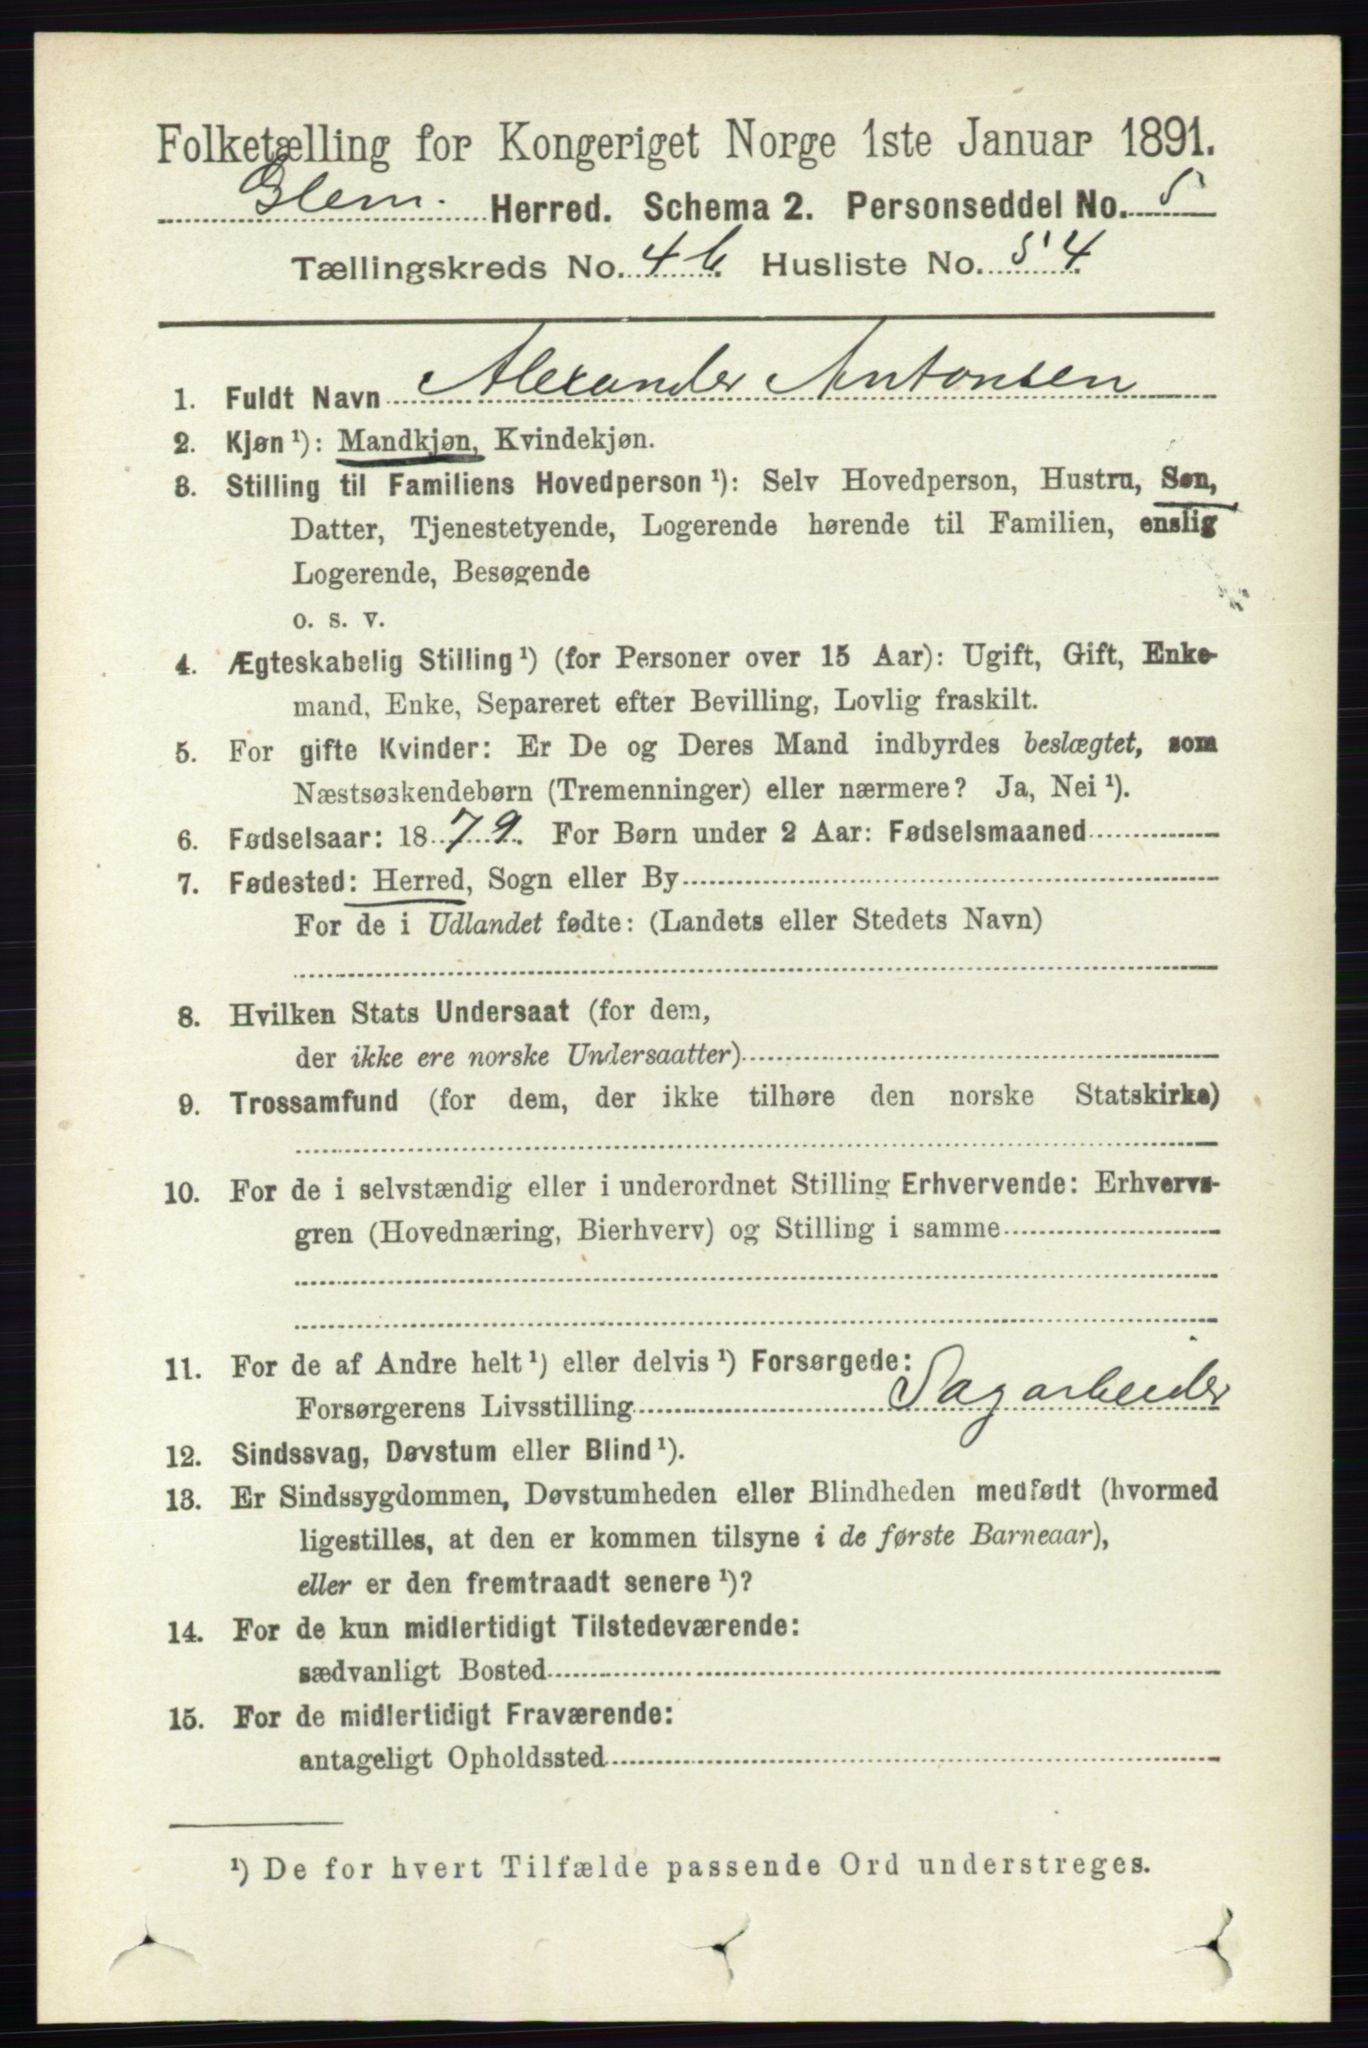 Folketælling for Kongeriget Norge 1ste Januar 1891.
Glem. Herred. Schema 2. Personseddel No. 5
Tællingskreds No. 4b. Husliste No. 54.
1. Fuldt Navn Alexander Antonsen
2. Kjøn ¹): Mandkjøn, Kvindekjøn.
3. Stilling til Familiens Hovedperson ¹): Selv Hovedperson, Hustru, Søn,
Datter, Tjenestetyende, Logerende hørende til Familien, enslig
Logerende, Besøgende
o. s. v.
4. Ægteskabelig Stilling ¹) (for Personer over 15 Aar): Ugift, Gift, Enke-
mand, Enke, Separeret efter Bevilling, Lovlig fraskilt.
5. For gifte Kvinder: Er De og Deres Mand indbyrdes beslægtet, som
Næstsøskendebørn (Tremenninger) eller nærmere? Ja, Nei ¹).
6. Fødselsaar: 1879. For Børn under 2 Aar: Fødselsmaaned
7. Fødested: Herred, Sogn eller By
For de i Udlandet fødte: (Landets eller Stedets Navn)
8. Hvilken Stats Undersaat (for dem,
der ikke ere norske Undersaatter)
9. Trossamfund (for dem, der ikke tilhøre den norske Statskirke)
10. For de i selvstændig eller i underordnet Stilling Erhvervende: Erhvervs-
gren (Hovednæring, Bierhverv) og Stilling i samme
11. For de af Andre helt ¹) eller delvis ¹) Forsørgede:
Forsørgerens Livsstilling Sagarbeider
12. Sindssvag, Døvstum eller Blind ¹).
13. Er Sindssygdommen, Døvstumheden eller Blindheden medfødt (hvormed
ligestilles, at den er kommen tilsyne i de første Barneaar),
eller er den fremtraadt senere ¹)?
14. For de kun midlertidigt Tilstedeværende:
sædvanligt Bosted
15. For de midlertidigt Fraværende:
antageligt Opholdssted
¹) De for hvert Tilfælde passende Ord understreges.